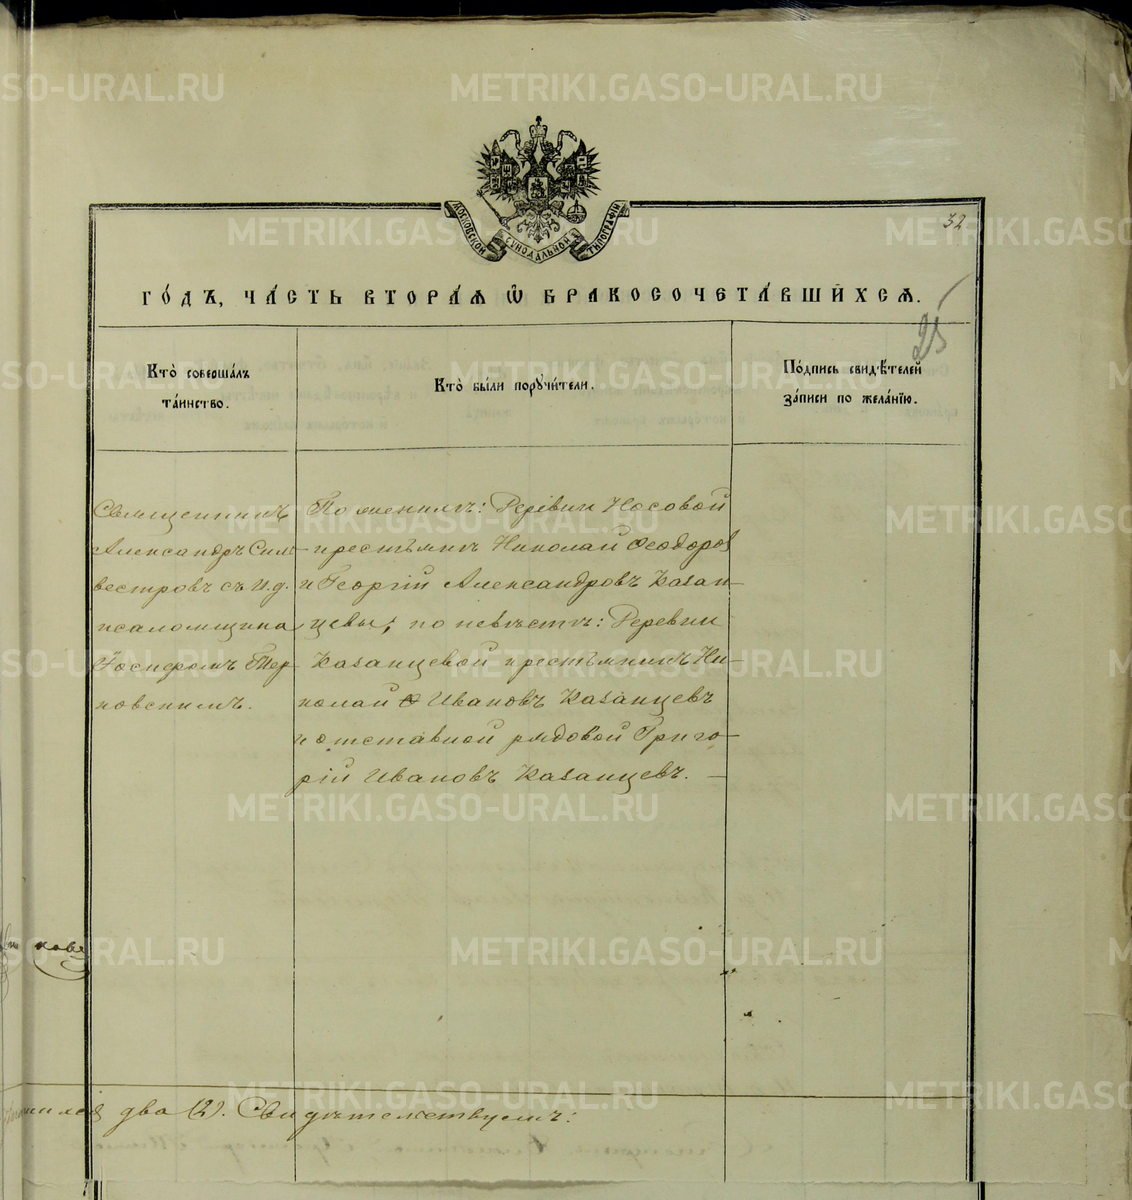 METRIKI.GASO-URAL.RU
МОСКОВСКОЙ СѴНОДАЛЬНОЙ ТИПОГРАФІИ
32
ГО́ДЪ, ЧА́СТЬ ВТОРА́Я Ѡ҆ БРАКОСОЧЕТА́ВШИХСЯ.
25
Кто̀ соверша́лъ
та́инство.
Кто̀ бы́ли поручи́тели.
По́дпись свид́ѣтелей
за́писи по жела́нїю.
Священникъ
Александръ Силь-
вестровъ съ И.д.
псаломщика
Іосифомъ Тер-
новскимъ.
По женихѣ: Деревни Носовой
крестьянинъ Николай Ѳеодоров
и Георгій Александровъ Казан-
цевы; по невѣстѣ: Деревни
Казанцевой крестьянинъ Ни-
колай Ивановъ Казанцевъ
и отставной рядовой Григо-
рій Ивановъ Казанцевъ.
два (2). Свидѣтельствуемъ: